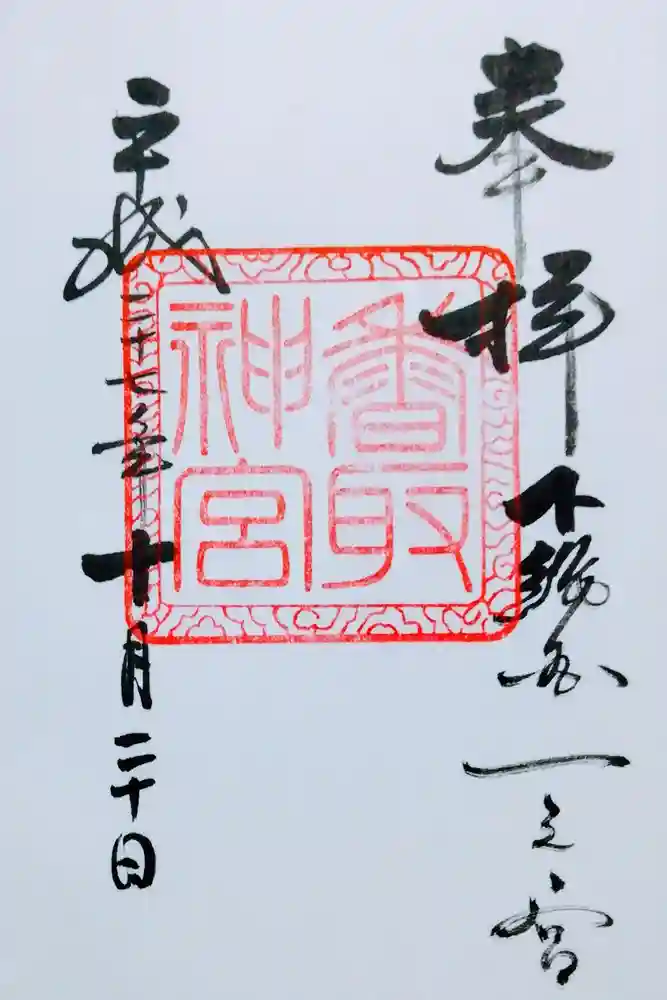 奉拝 下総国一之宮
香取
神宮
平成二十七年十月二十日